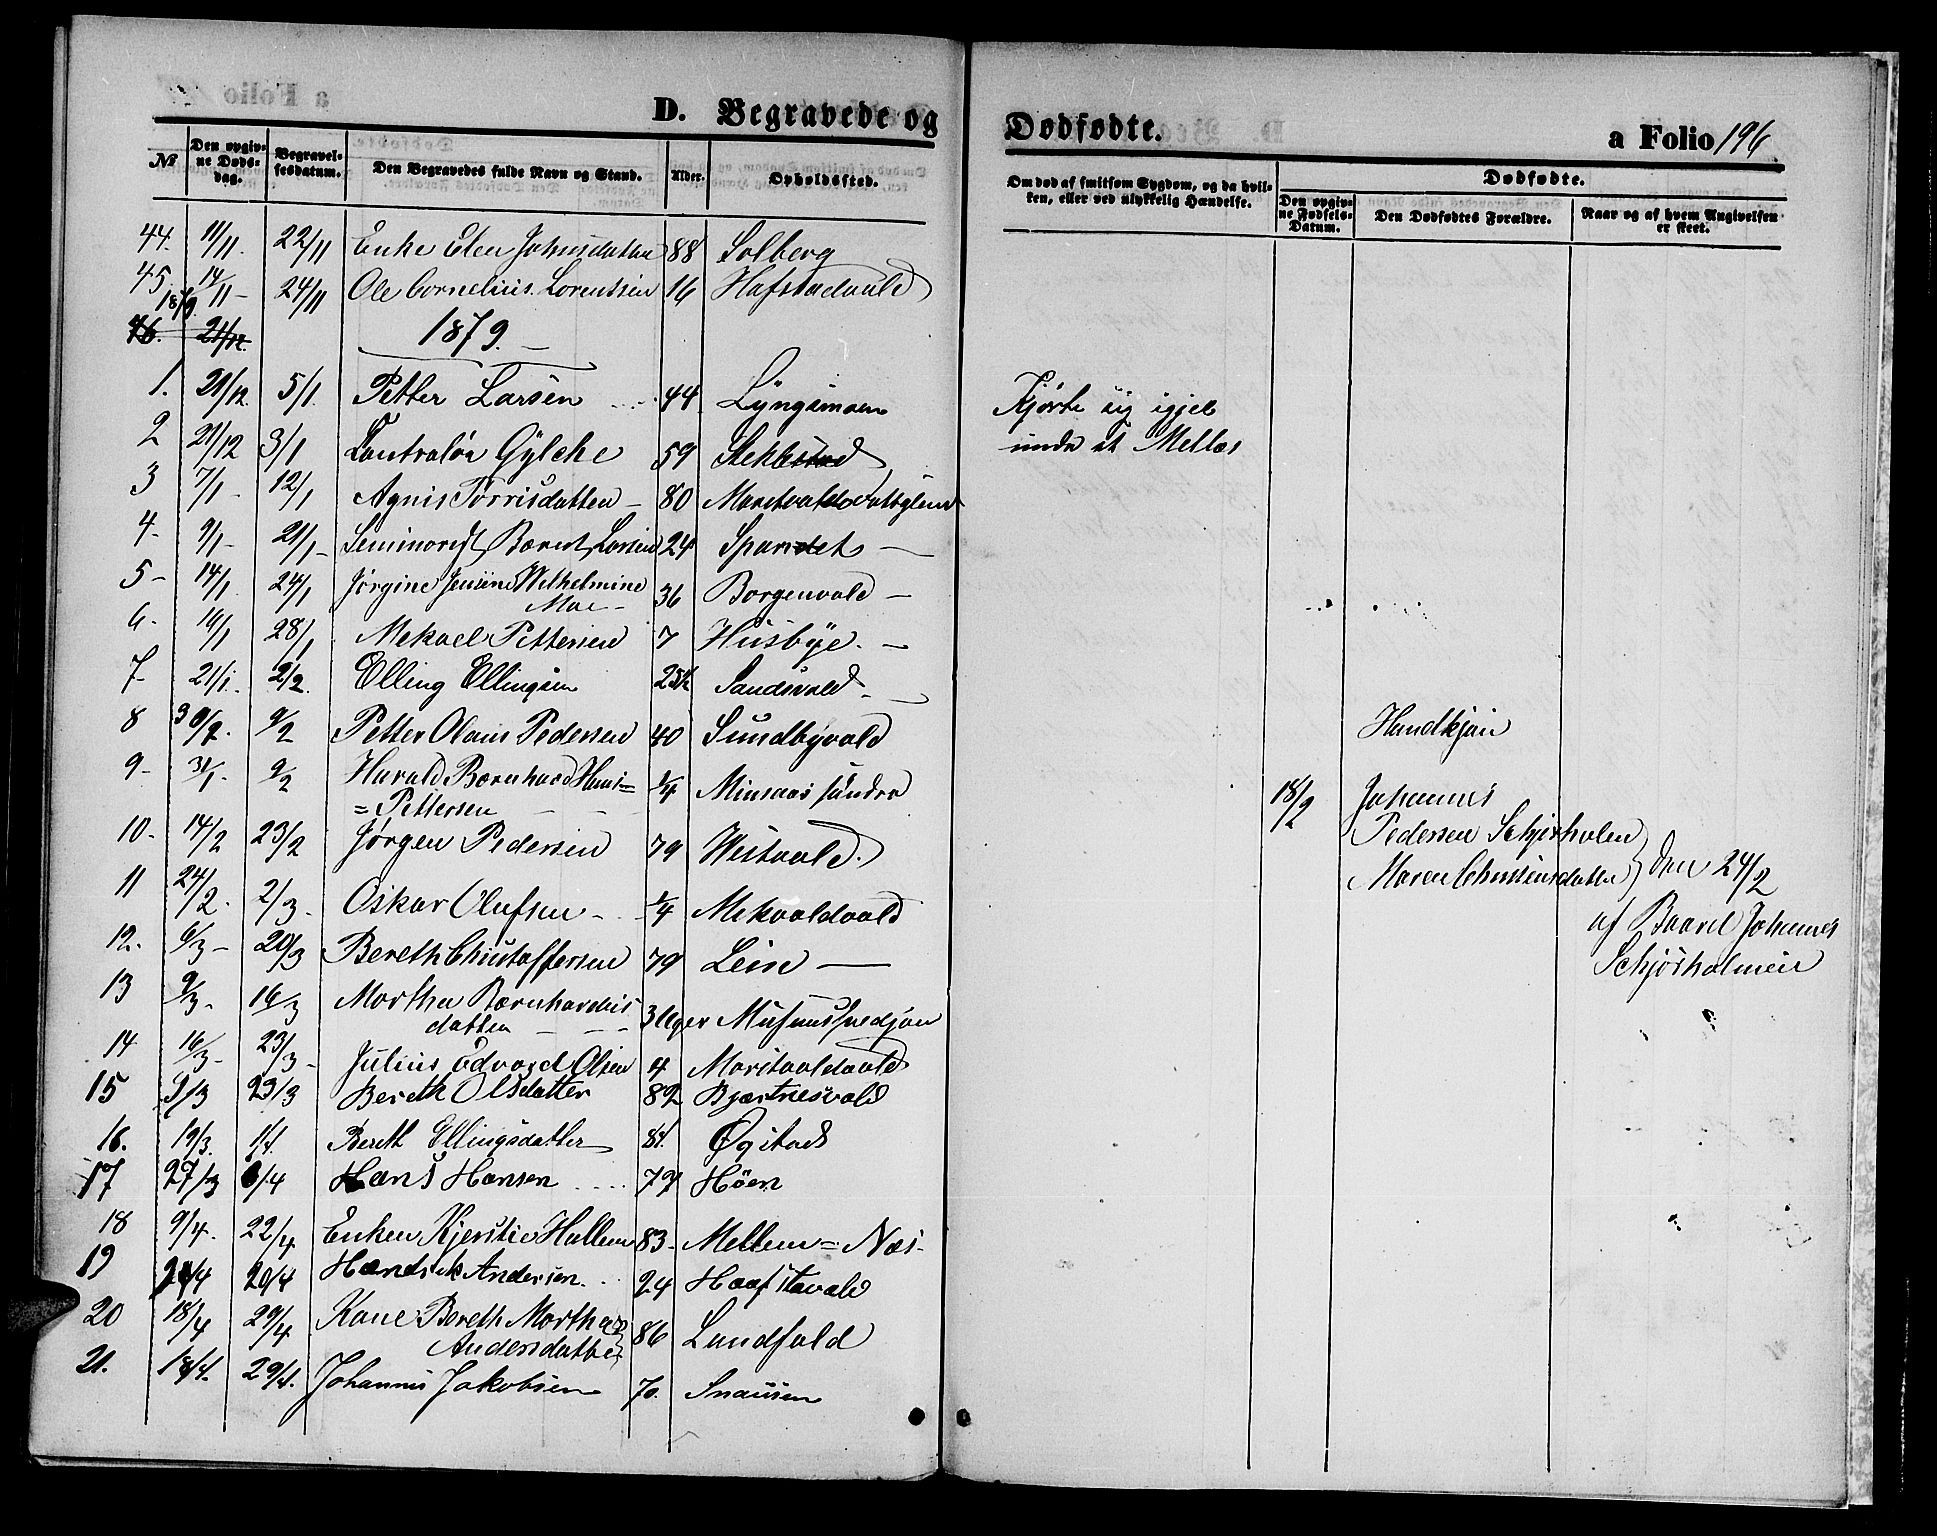 D. Begravede og
Dødfødte.
a Folio 196.
№
Den opgivne Dødsdag.
Begravelsesdatum.
Den Begravedes fulde Navn og Stand.
Alder.
Opholdssted.
Om død af smitsom Sygdom, og da hvilken, eller ved ulykkelig Hændelse.
Dødfødte.
Den opgivne Fødsels-Datum.
Den Dødfødtes Forældre.
Naar og af hvem Angivelsen er skeet.
44. 11/11. 22/11 Enke Elen Johnsdatter 88 Solberg
45. 14/11 - 24/11 Ole Cornelius Lorentsen 16 Hafstadvald
1879
46. 21/12. 1879. -
1. 21/12. 5/1. Petter Larsen 44 Lyngsmoen
Kjørte sig igjel
under et Mellæs
2 21/12 3/1 Gylche 59
3 7/1 - 12/1 Agnis Torrisdatter - 80
4. 9/1 - 21/1 - Seminarist Bernt Larsen 24 Spandet -
5 - 14/1 24/1 Jørgine Jensine Wilhelmine 36 Borgenvald -
Moe -
6. 19/1 28/1 Mekael Pettersen 7 Husbye. -
7. 21/1. 2/2. Elling Ellingsen 25½ Sandsvald -
8 30/2. 9/2 Petter Olaus Pedersen 40 Sundbyvald
9 - 31/1. 9/2 Harald Bernhard Hans= ¼ Minsaas søndre
= Pettersen
10. 14/2 23/2 Jørgen Pedersen 79 Wistvald.
18/2 Johannes
Pedersen Schjerholm
Maren Christensdatter
den 24/2
af Baard Johannes
Schjørholmen
11 24/2. 2/3. Oskar Olufsen - ¼ Mekvoldvald
12. 6/3 - 20/3 Bereth Christoffersen 79 Lein -
13 9/3. 16/3 Martha Bernhardus 3 Uger
datter
14 16/3 - 23/3 - Julius Edvard Olsen 4 Maritvoldvald
15 9/3 23/3 Bereth Olsdatter 82 Bjærtnesvald
16. 19/3. 1/4. Bereth Ellingsdatter 81. Øgstad
17 27/3 6/4 Hans Hansen 79 Höen
18 9/4. 22/4 Enken Kjerstie Hallem 83 - Mellem = Næs -
19 20/4 Hendrik Andersen 24 Haafstavald
20 18/4 29/4 Kone Bereth Martha 86 Landfald
Andersdatter
21. 18/4. 29/4. Johannis Jakobsen 70. Snausen